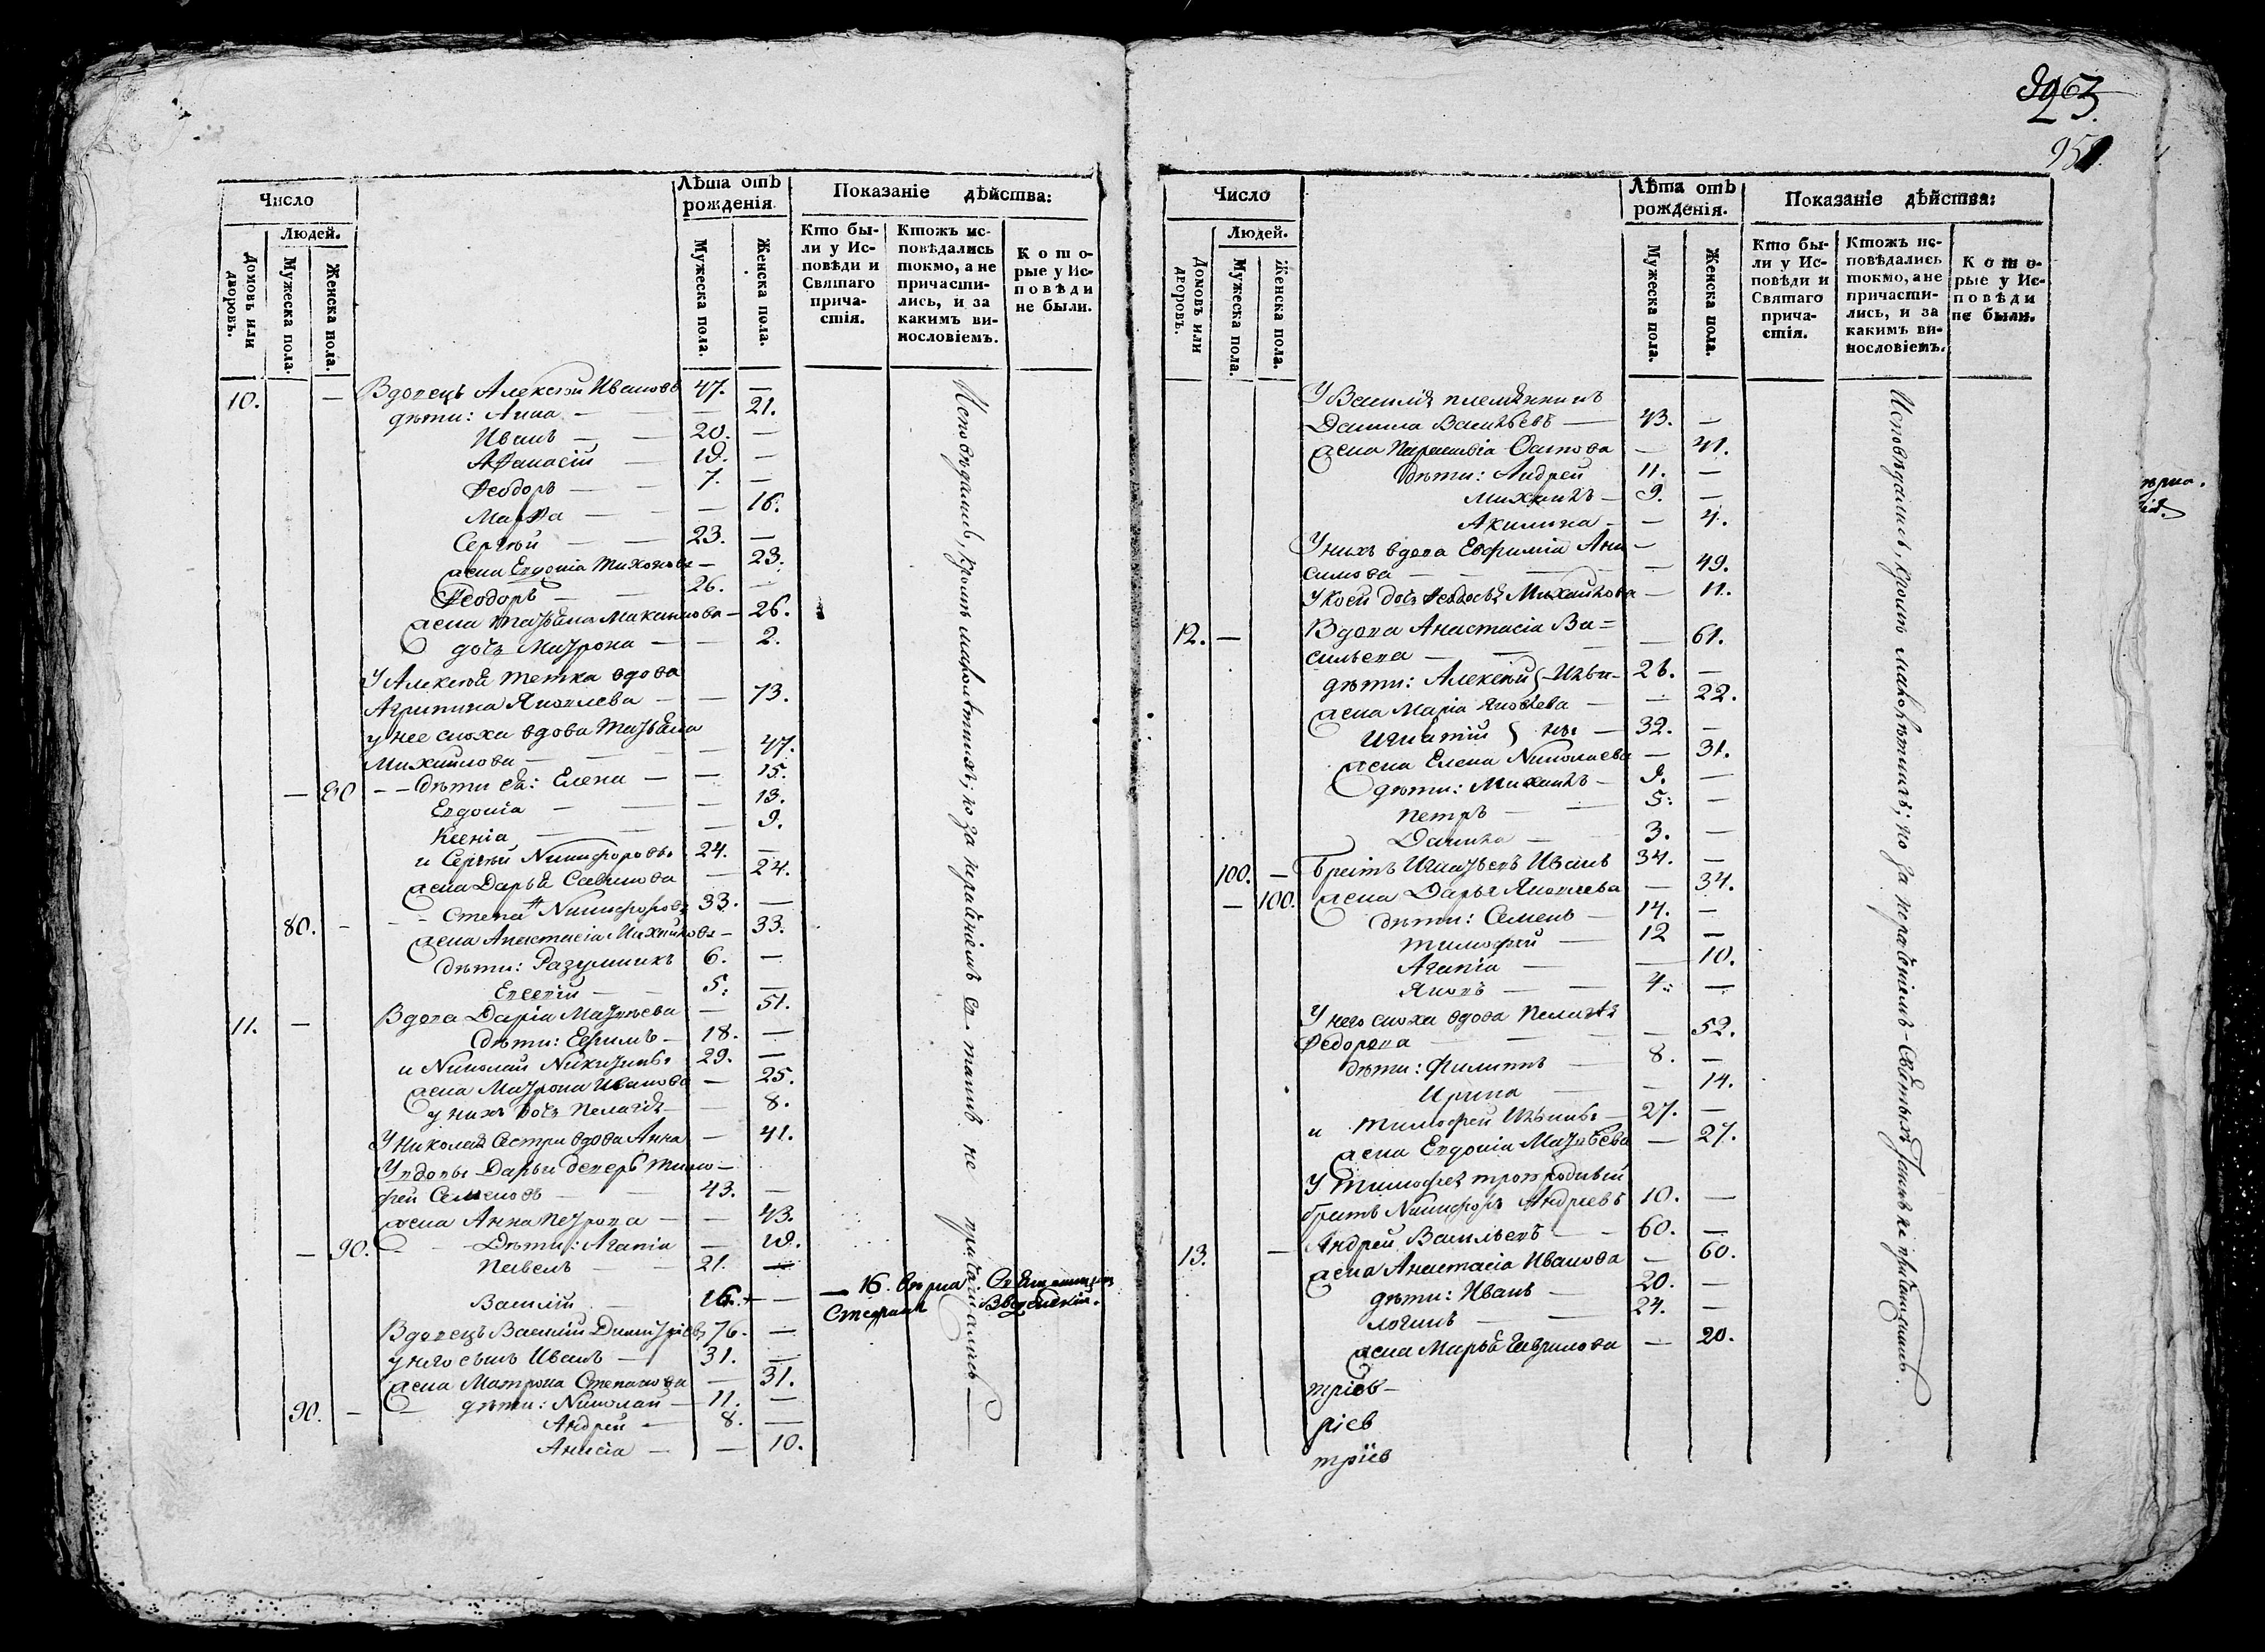 Число
Людей.
Домовъ или дворовъ.
Мужеска пола.
Женска пола.
Лѣта отъ рожденія
Мужеска пола.
Женска пола.
Показаніе дѣйства:
Кто бы-
ли у Ис-
повѣди и
Святаго
прича-
стія.
Ктожъ ис-
повѣдались
токмо, а не
причасти-
лись, и за
какимъ ви-
нословіемъ.
Кото-
рые у Ис-
повѣди
не были.
10. — Вдовецъ Алексѣй Ивановъ 47. —
дѣти: Анна — — 21.
Иванъ — — 20. —
Афанасій — 19. —
Ѳеодоръ — — 7. —
Марѳа — — — 16.
Сергѣй — — 23. —
жена Евдокіа Тихонова — 23.
Ѳеодоръ — — 26. —
жена Татьяна Максимова — 26.
дочь Матрона — — 2.
У Алексѣя тетка вдова
Агрипина Яковлева — — 73.
у нее сноха вдова Татьяна
Михайлова — — — 47.
— 80 — — дѣти ея: Елена — — 15.
Евдокіа — — 13.
Ксеніа — — — 9.
и Сергѣй Никифоровъ 24. —
жена Дарья Савинова — 24.
Степанъ Никифоровъ 33. —
80. — жена Анастасіа Михайлова — 33.
дѣти: Разумникъ 6. —
Евсевій — — 5. —
11. — Вдова Даріа Матвѣева — 51.
дѣти: Ефимъ — 18. —
и Николай Никитинъ 29. —
жена Матрона Иванова — 25.
у нихъ дочь Пелагія — — 8.
У Николая сестра вдова Анна — 41.
У вдовы Дарьи деверь Тимо-
фей Семеновъ — — 43. —
жена Анна Петрова — — 43.
— 90. — Дѣти: Агапіа — 19.
Павелъ — — 21. —
Василій — 16. — — 16.
Вдовецъ Василій Димитріевъ 76. —
у него сынъ Иванъ — 31. —
жена Матрона Степанова — 31.
90. — дѣти: Николай — 11. —
Андрей — 8. —
Анисіа — — 10.
Исповѣдались, кромѣ малолѣтнихъ; но за нераденіемъ св. таинъ не причащались
263.
951.
Число
Людей.
Домовъ или дворовъ.
Мужеска пола.
Женска пола.
Лѣта отъ рожденія.
Мужеска пола.
Женска пола.
Показаніе дѣйства:
Кто бы-
ли у Ис-
повѣди и
Святаго
прича-
стія.
Ктожъ ис-
повѣдались
токмо, а не
причасти-
лись, и за
какимъ ви-
нословіемъ.
Кото-
рые у Ис-
повѣди
не были.
У Василія племянникъ
Данила Васильевъ — 43. —
жена Параскевіа Осипова — 41.
дѣти: Андрей 11. —
Михаилъ — 9. —
Акилина — — 4.
У нихъ вдова Евфиміа Ани-
симова — — — 49.
у коей дочь Ѳеодосья Михайлова — 11.
12. — Вдова Анастасіа Ва=
сильева — — — 61.
дѣти: Алексѣй } Ильи- 26. —
жена Маріа Яковлева — — 22.
Игнатій } ны — 32. —
жена Елена Николаева — 31.
дѣти: Михаилъ — 9. —
Петръ — — 5. —
Данила — 3. —
100. — Братъ Игнатьевъ Иванъ 34. —
— 100. жена Дарья Яковлева — 34.
дѣти: Семенъ — 14. —
Тимофей — 12 —
Агапіа — — 10.
Яковъ — — 4. —
У него сноха вдова Пелагея
Федорова — — — 52.
дѣти: Филиппъ — 8. —
Ирина — — 14.
и Тимофей Ильинъ — 27. —
жена Евдокіа Матвѣева — 27.
У Тимофея троюродный
братъ Никифоръ Андреевъ 10. —
13. — Андрей Васильевъ — 60. —
жена Анастасіа Иванова — 60.
дѣти: Иванъ — 20. —
Логинъ — — 24. —
жена Марья Гаврилова — 20.
тріев-
ріев
тріев
Исповѣдались, кромѣ малолѣтнихъ; но за нераденіемъ Святыхъ Таинъ не причащались.